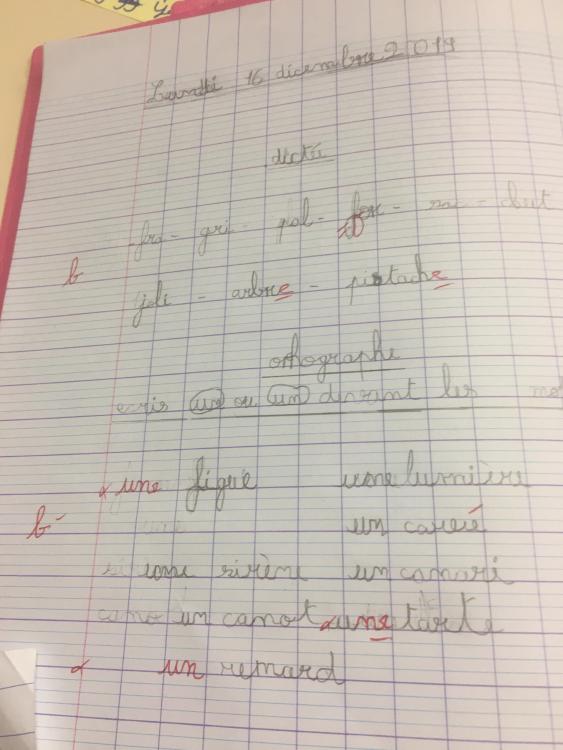 Lundi 16 dicembre 2019
dictée
fra - gri - pal - - - chut
b
joli - arbre - pistache
orthographe
ecris un ou un devant les mo
une figue une lumière
b- un carré
si une sirène un canari
cano un canot une tarte
un remard